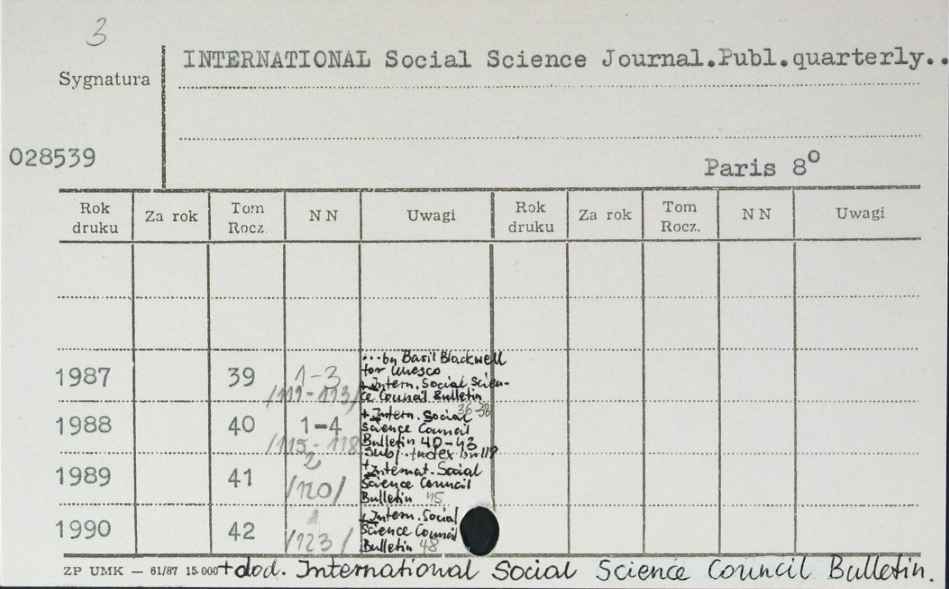 3
INTERNATIONAL Social Science Journal.Publ.quarterly..
Sygnatura
028539
Paris 8⁰
Rok druku Za rok Tom Rocz. NN Uwagi Rok druku Za rok Tom Rocz. NN Uwagi
...by Basil Blackwell
for Unesco
1987 39 1-3 + Intern. Social Scien-
/111-113/ ce Council Bulletin
36-38
1988 40 1-4 + Intern. Social
Science Council
/115-118 Bulletin 40-43
Subj. Index in 118
1989 41 2 + Internat. Social
/120/ Science Council
Bulletin 45
1990 42 1 + Intern. Social
/123/ Science Council
Bulletin 48
ZP UMK — 61/87 15.000 + dod. International Social Science Council Bulletin.